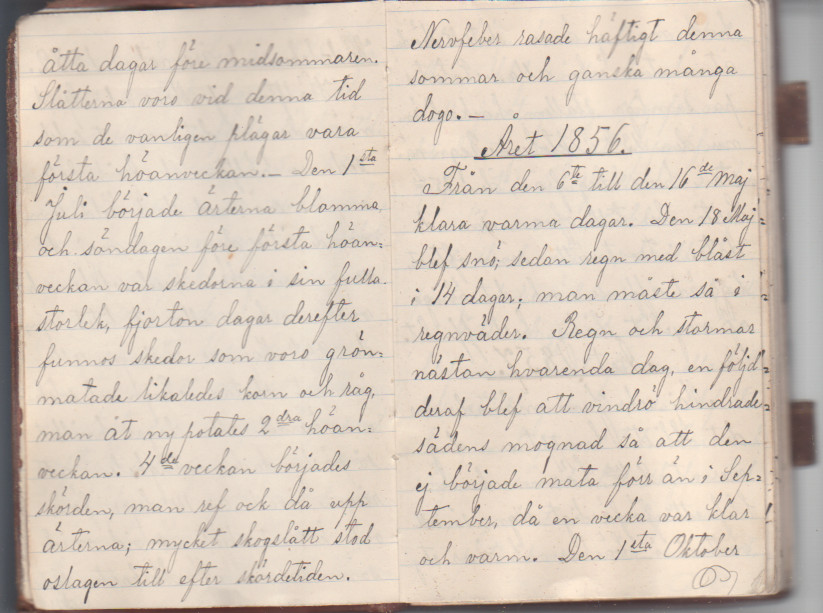 åtta dagar före midsommaren.
Slåtterna voro vid denna tid
som de vanligen plägar vara
första höanveckan.— Den 1sta
Juli började ärterna blomma,
och söndagen före första höan-
veckan var skedorna i sin fulla
storlek, fjorton dagar derefter
funnos skedor som voro grön-
matade likaledes korn och råg,
man åt ny potates 2dra höan-
veckan. 4de veckan börjades
skörden, man ref ock då upp
ärterna; mycket skogslått stod
oslagen till efter skördetiden.
Nervfeber rasade häftigt denna
sommar och ganska många
dogo.—
Året 1856.
Från den 6te till den 16de Maj
klara varma dagar. Den 18 Maj
blef snö; sedan regn med blåst
i 14 dagar; man måste så i
regnväder. Regn och stormar
nästan hvarenda dag, en följd
deraf blef att vindrö hindrade
sädens mognad så att den
ej började mata förr än i Sep-
tember, då en vecka var klar
och varm. Den 1sta Oktober